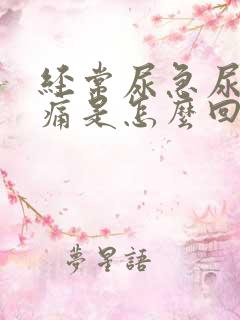 經常尿急尿
痛是怎麼回
夢星語